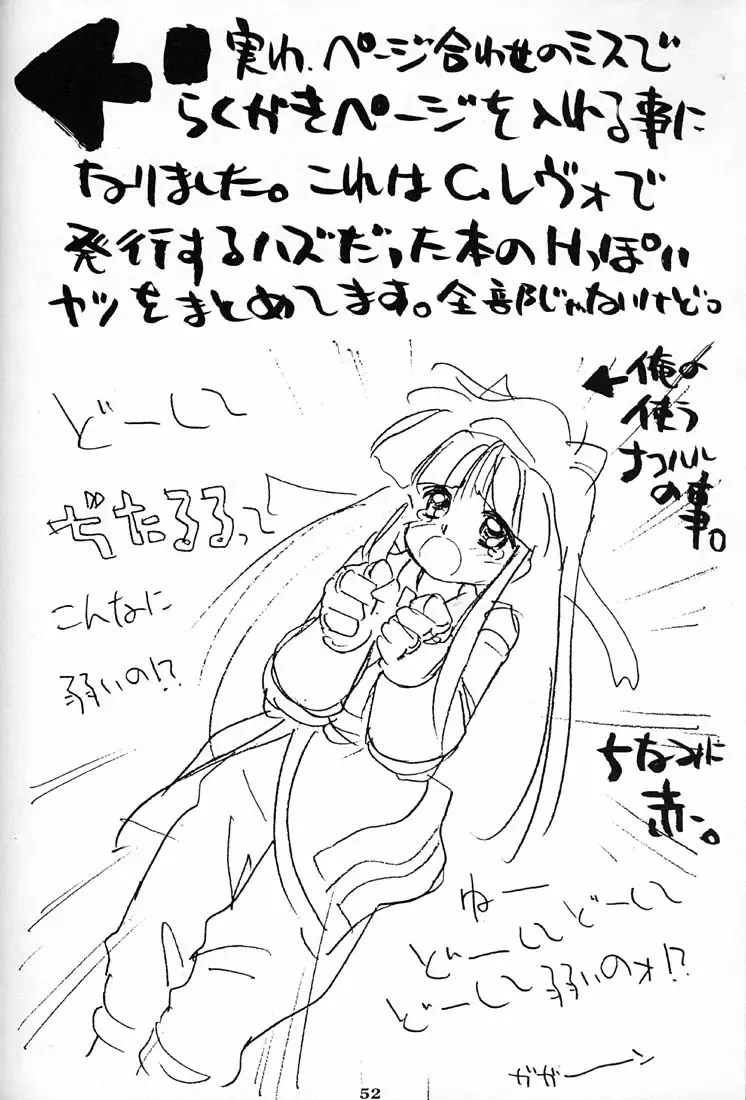 実わ、ページ合わせのミスで
らくがきページを入れる事に
なりました。これはC.レヴォで
発行するハズだった本のHっぽい
ヤツをまとめてます。全部じゃないけどっ。
←俺の
使う
ナコルル
の事。
どーして
ぢたるるって
こんなに
弱いの!?
ちなみに
赤ー。
ねー
どーしてどーして
どーして弱いのォ!?
ガガーーン
52